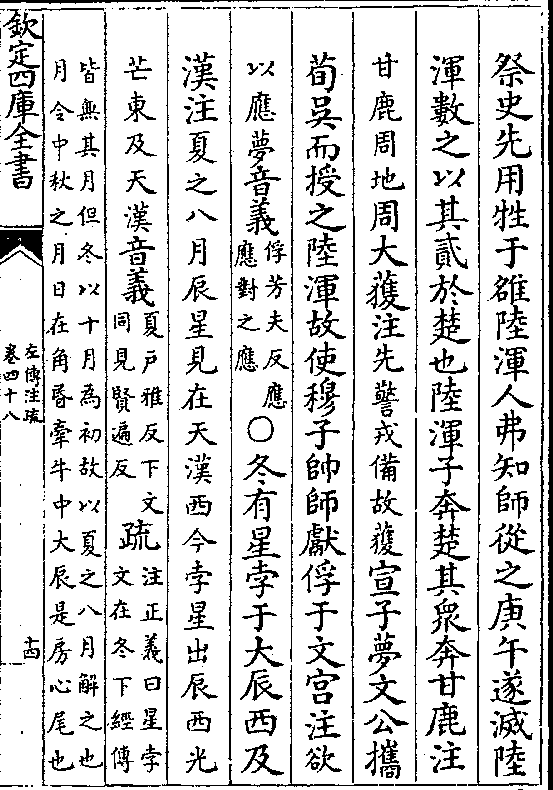 祭史先用牲于雒陸渾人弗知師從之庚午遂滅陸
渾數之以其貳於楚也陸渾子奔楚其衆奔甘鹿注
甘鹿周地周大蒦注先警戎備故獲宣子夢文公攜
荀吳而授之陸渾故使穆子帥師獻俘于文宫注欲
以應夢音義俘芳夫反應
應對之應
○冬有星孛于大辰西及
漢注夏之八月辰星見在天漢西今孛星出辰西光
芒東及天漢音義夏戸雅反下文
同見賢遍反
疏注正義曰星孛
文在冬下經傳
皆無其月但冬以十月為初故以夏之八月解之也
月令中秋之月日在角昏牽牛中大辰是房心尾也
欽定四庫全書
左傳注疏
卷四十八
十四